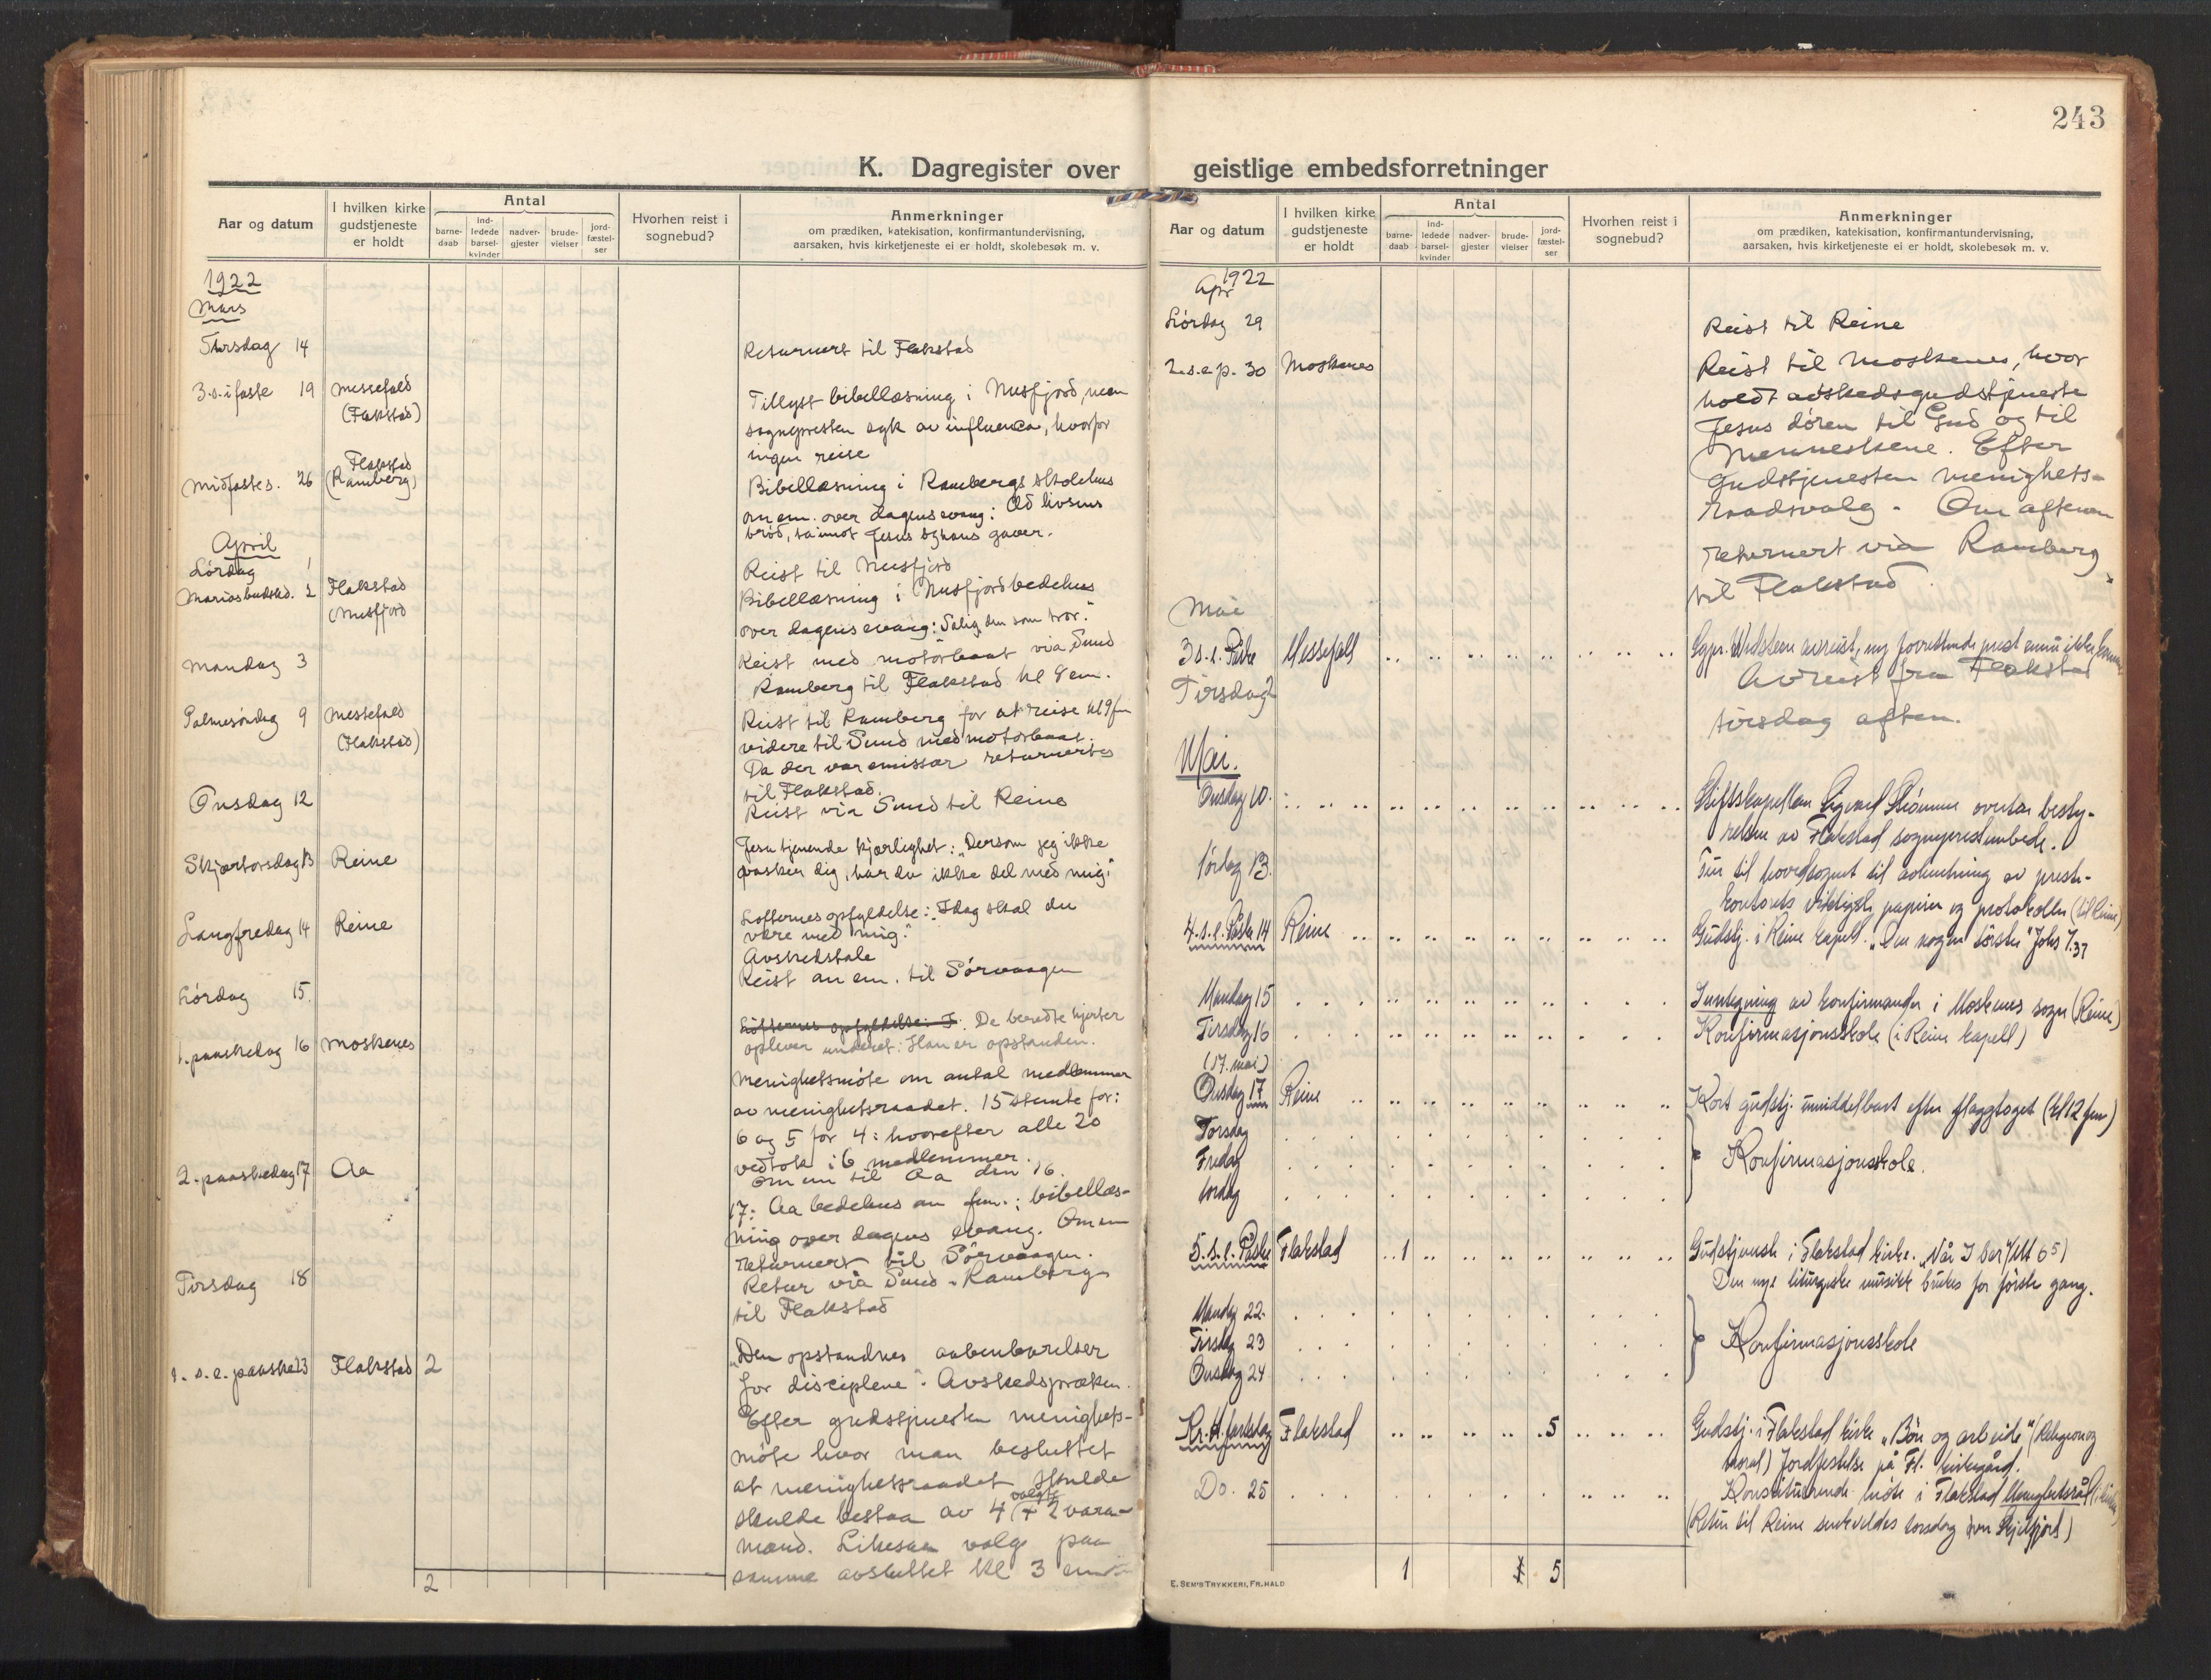 243
K. Dagregister over
Aar og datum
I hvilken kirke gudstjeneste er holdt
Antal
barne-daab
ind-ledede barsel-kvinder
nadver-gjester
brude-vielser
jord-fæstel-ser
Hvorhen reist i sognebud?
Anmerkninger
om prædiken, katekisation, konfirmantundervisning,
aarsaken, hvis kirketjeneste ei er holdt, skolebesøk m. v.
1922
Mars
Tirsdag 14 Returnert til Flakstad
3.s. i faste 19 Messefald Tillyst bibellæsning i Nusfjord, men
(Flakstad) sognepresten syk av influenca, hvorfor
ingen reise
Midfastes. 26 Flakstad (Ramberg) Bibellæsning i Rambergs skolehus
om em. over dagens evang: Æd livsens
brød, ta imot Jesus og hans gaver.
April
Lørdag 1 Reist til Nusfjord
Mariæ budskd. 2 Flakstad Bibellæsning i Nusfjord bedehus
(Nusfjord over dagens evang: "Salig den som tror."
Mandag 3 Reist med motorbaat via Sund
Ramberg til Flakstad kl 8 em.
Palmesøndag 9 Messefald Reist til Ramberg for at reise kl 9 fm
(Flakstad) videre til Sund med motorbaat.
Da der var emissær returnertes
til Flakstad.
Onsdag 12 Reist via Sund til Reine
Skjærtorsdag 13 Reine Jesu tjenende kjærlighet: "Dersom jeg ikke
vasker dig, har du ikke del med mig."
Langfredag 14 Reine Løfternes opfyldelse: "Idag skal du
være med mig."
Avskedstale
Reist om em. til Sørvaagen
Lørdag 15.
Løfternes opfyldelse: I. De beredte hjerter
1. paaskedag 16 Moskenes oplever underet: Han er opstanden.
Menighetsmøte om antal medlemmer
av menighetsraadet. 15 stemte for:
6 og 5 for 4: hvorefter alle 20
vedtok i 6 medlemmer.
Om em til Aa den 16.
2. paaskedag 17 Aa 17: Aa bedehus om fm.: bibellæs-
ning over dagens evang. Om em
returnert til Sørvaagen.
Tirsdag 18 Retur via Sund - Ramberg
til Flakstad
1. s. e. paaske 23 Flakstad 2 "Den opstandnes aabenbarelser
for disciplene". Avskedspræken.
Efter gudstjenesten menighets-
møte hvor man besluttet
at menighetsraadet skulde
skulde bestaa av 4 valgte + 2 vara-
mænd. Likesaa valg paa
samme avsluttet kl 3 em
2
geistlige embedsforretninger
Aar og datum
I hvilken kirke gudstjeneste er holdt
Antal
barne-daab
ind-ledede barsel-kvinder
nadver-gjester
brude-vielser
jord-fæstel-ser
Hvorhen reist i sognebud?
Anmerkninger
om prædiken, katekisation, konfirmantundervisning,
aarsaken, hvis kirketjeneste ei er holdt, skolebesøk m. v.
1922
Apr
Lørdag 29 Reist til Reine
2.s.e.p. 30 Moskenes Reist til Moskenes, hvor
holdt avskedsgudstjeneste
Jesus døren til Gud og til
Menneskene. Efter
Gudstjenesten menighets-
raadsvalg. Om aftenen
returnert via Ramberg
til Flakstad.
Mai
3 s. e. Påske Messefall Sgpr. avreist, ny forrettende prest ennu ikke kommen
Tirsdag 2 Avreist fra Flakstad
tirsdag aften.
Mai.
Onsdag 10. Stiftskapellan Sigvard overtar besty-
relsen av Flakstad sogneprestembede.
Lørdag 13. Tur til hovedsognet til avhentning av preste-
kontorets viktigste papirer og protokoller (til Reine)
4. s. e. Påske 14 Reine Gudstj. i Reine kapell. "Om nogen tørster" Johs 7.37
Mandag 15 Innlegning av konfirmander i Moskenes sogn (Reine)
Tirsdag 16 Konfirmasjonsskole (i Reine kapell)
(17. mai)
Onsdag 17 Reine Kort gudstj. umiddelbart efter flaggtoget (kl 12 fm)
Torsdag
Fredag Konfirmasjonsskole.
Lørdag
5. s. e. Påske Flakstad 1 Gudstjeneste i Flakstad kirke. "Når I ber" (Mt 6 5)
Den nye liturgiske musikk brukes for første gang.
Mandag 22.
Tirsdag 23 Konfirmasjonsskole
Onsdag 24
Kr. H. fartsdag Flakstad 5 Gudstj. i Flakstad kirke "Bøn og arbeide" (Religion og
moral) Jordfestelse på Fl. kirkegård.
Do. 25 Konstituerende møte i Flakstad Menighetsråd
(Retur til Reine senkveldes torsdag over Skjelfjord)
1 5
E. SEM'S TRYKKERI, FR.HALD